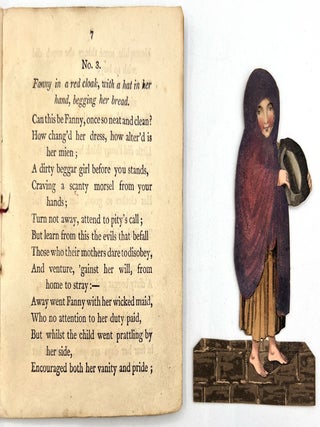 7
No. 3.
Fanny in a red cloak, with a hat in her
hand, begging her bread.
Can this be Fanny, once so neat and clean?
How chang'd her dress, how alter'd is
her mien;
A dirty beggar girl before you stands,
Craving a scanty morsel from your
hands;
Turn not away, attend to pity's call;
But learn from this the evils that befall
Those who their mothers dare to disobey,
And venture, 'gainst her will, from
home to stray:—
Away went Fanny with her wicked maid,
Who no attention to her duty paid,
But whilst the child went prattling by
her side,
Encouraged both her vanity and pride;